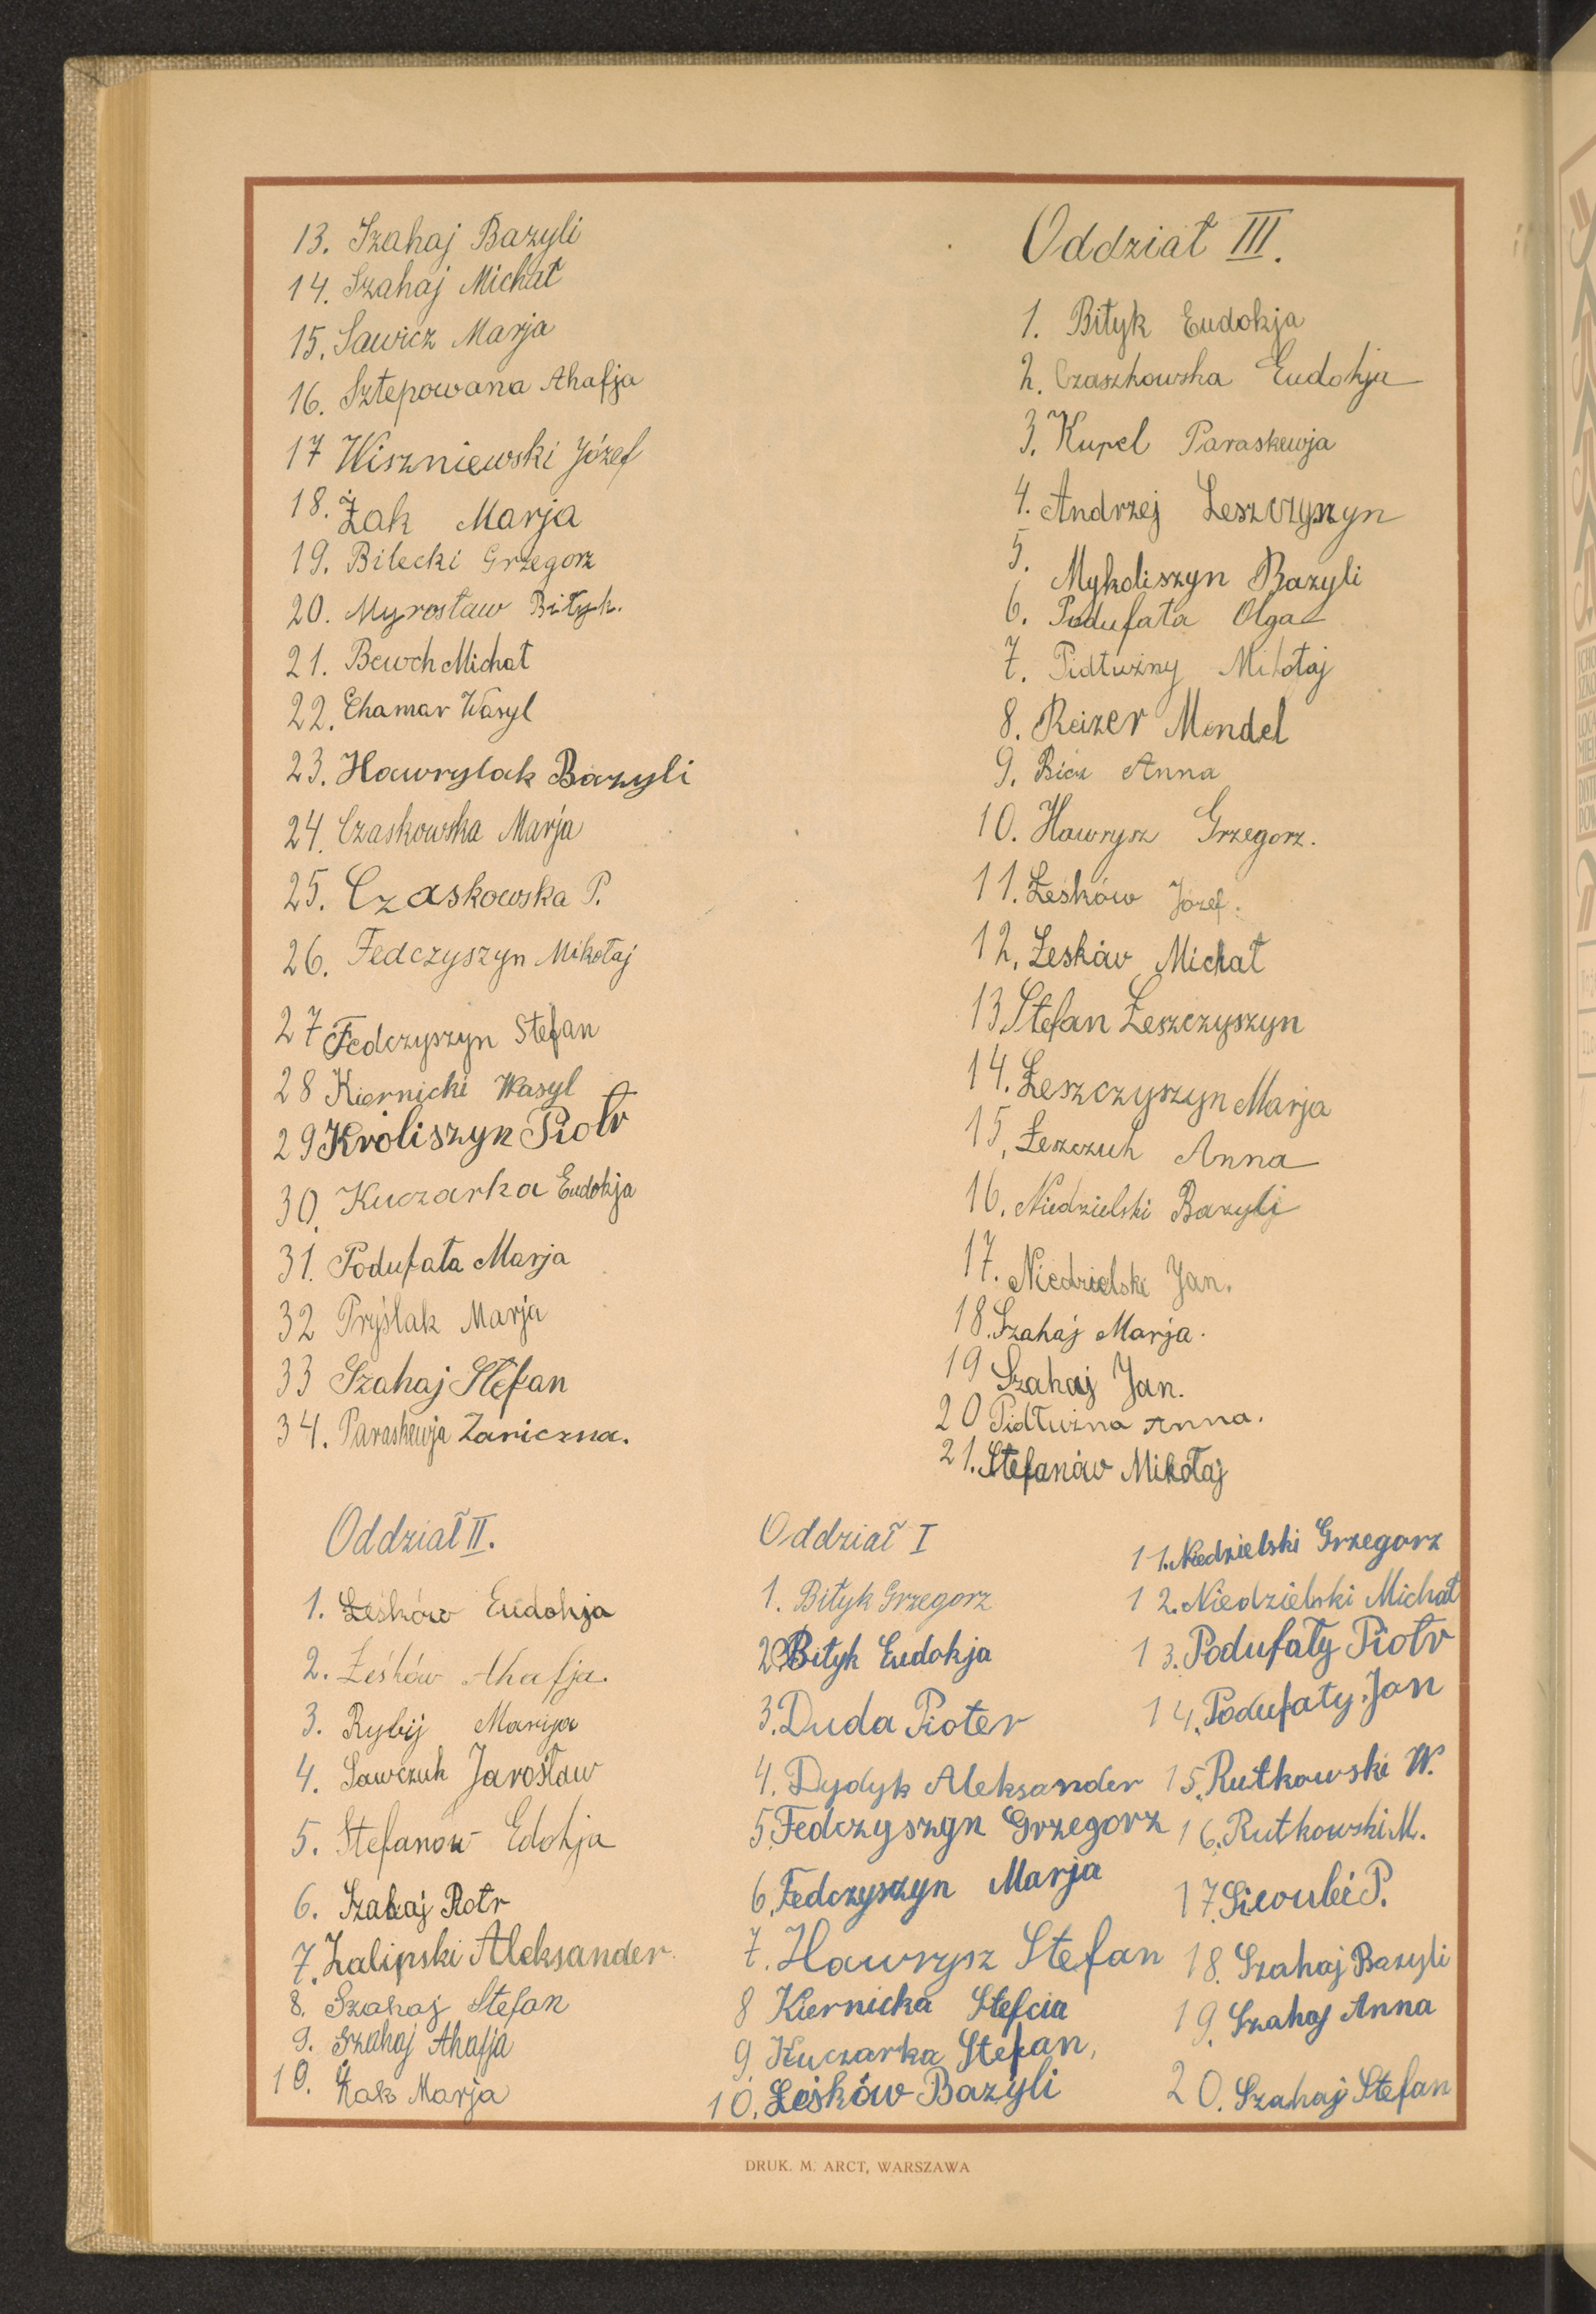 13. Szahaj Bazyli
14. Szahaj Michał
15. Sawicz Marja
16. Sztepowana Ahafja
17 Wiszniewski Józef
18. Żak Marja
19. Bilecki Grzegorz
20. Myrosław Biłyk.
21. Bewch Michał
22. Chamar Wasyl
23. Hawrylak Bazyli
24. Czaskowska Marja
25. Czaskowska P.
26. Fedczyszyn Mikołaj
27 Fedczyszyn Stefan
28 Kiernicki Wasyl
29 Króliszyn Piotr
30. Kuczarka Eudokja
31. Podufała Marja
32 Pryślak Marja
33 Szahaj Stefan
34. Paraskewja Zariczna.
Oddział III.
1. Biłyk Eudokja
2. Czaszkowska Eudokja
3. Kupel Paraskewja
4. Andrzej Leszczyszyn
5. Mykoliszyn Bazyli
6. Podufała Olga
7. Pidłużny Mikołaj
8. Reizer Mendel
9. Bicz Anna
10. Hawrysz Grzegorz.
11. Łeśków Józef.
12. Łeśków Michał
13 Stefan Łeszczyszyn
14. Łeszczyszyn Marja
15. Łeszczuk Anna
16. Niedzielski Bazyli
17. Niedzielski Jan.
18. Szahaj Marja.
19 Szahaj Jan.
20 Pidłużna Anna.
21. Stefanów Mikołaj
Oddział II.
1. Łeśków Eudokja
2. Łeśków Ahafja.
3. Rybij Marija
4. Sawczuk Jarosław
5. Stefanow Edokja
6. Szahaj Piotr
7. Zalipski Aleksander.
8. Szahaj Stefan
9. Szahaj Ahafja
10. Żak Marja
Oddział I
1. Biłyk Grzegorz
2. Biłyk Eudokja
3. Duda Pioter
4. Dydyk Aleksander
5. Fedczyszyn Grzegorz
6. Fedczyszyn Marja
7. Hawrysz Stefan
8 Kiernicka Stefcia
9 Kuczarka Stefan,
10. Łeśków Bazyli
11. Niedzielski Grzegorz
12. Niedzielski Michał
13. Podufały Piotr
14. Podufały Jan
15. Rutkowski W.
16. Rutkowski M.
17. P.
18. Szahaj Bazyli
19. Szahaj Anna
20. Szahaj Stefan
DRUK. M. ARCT, WARSZAWA